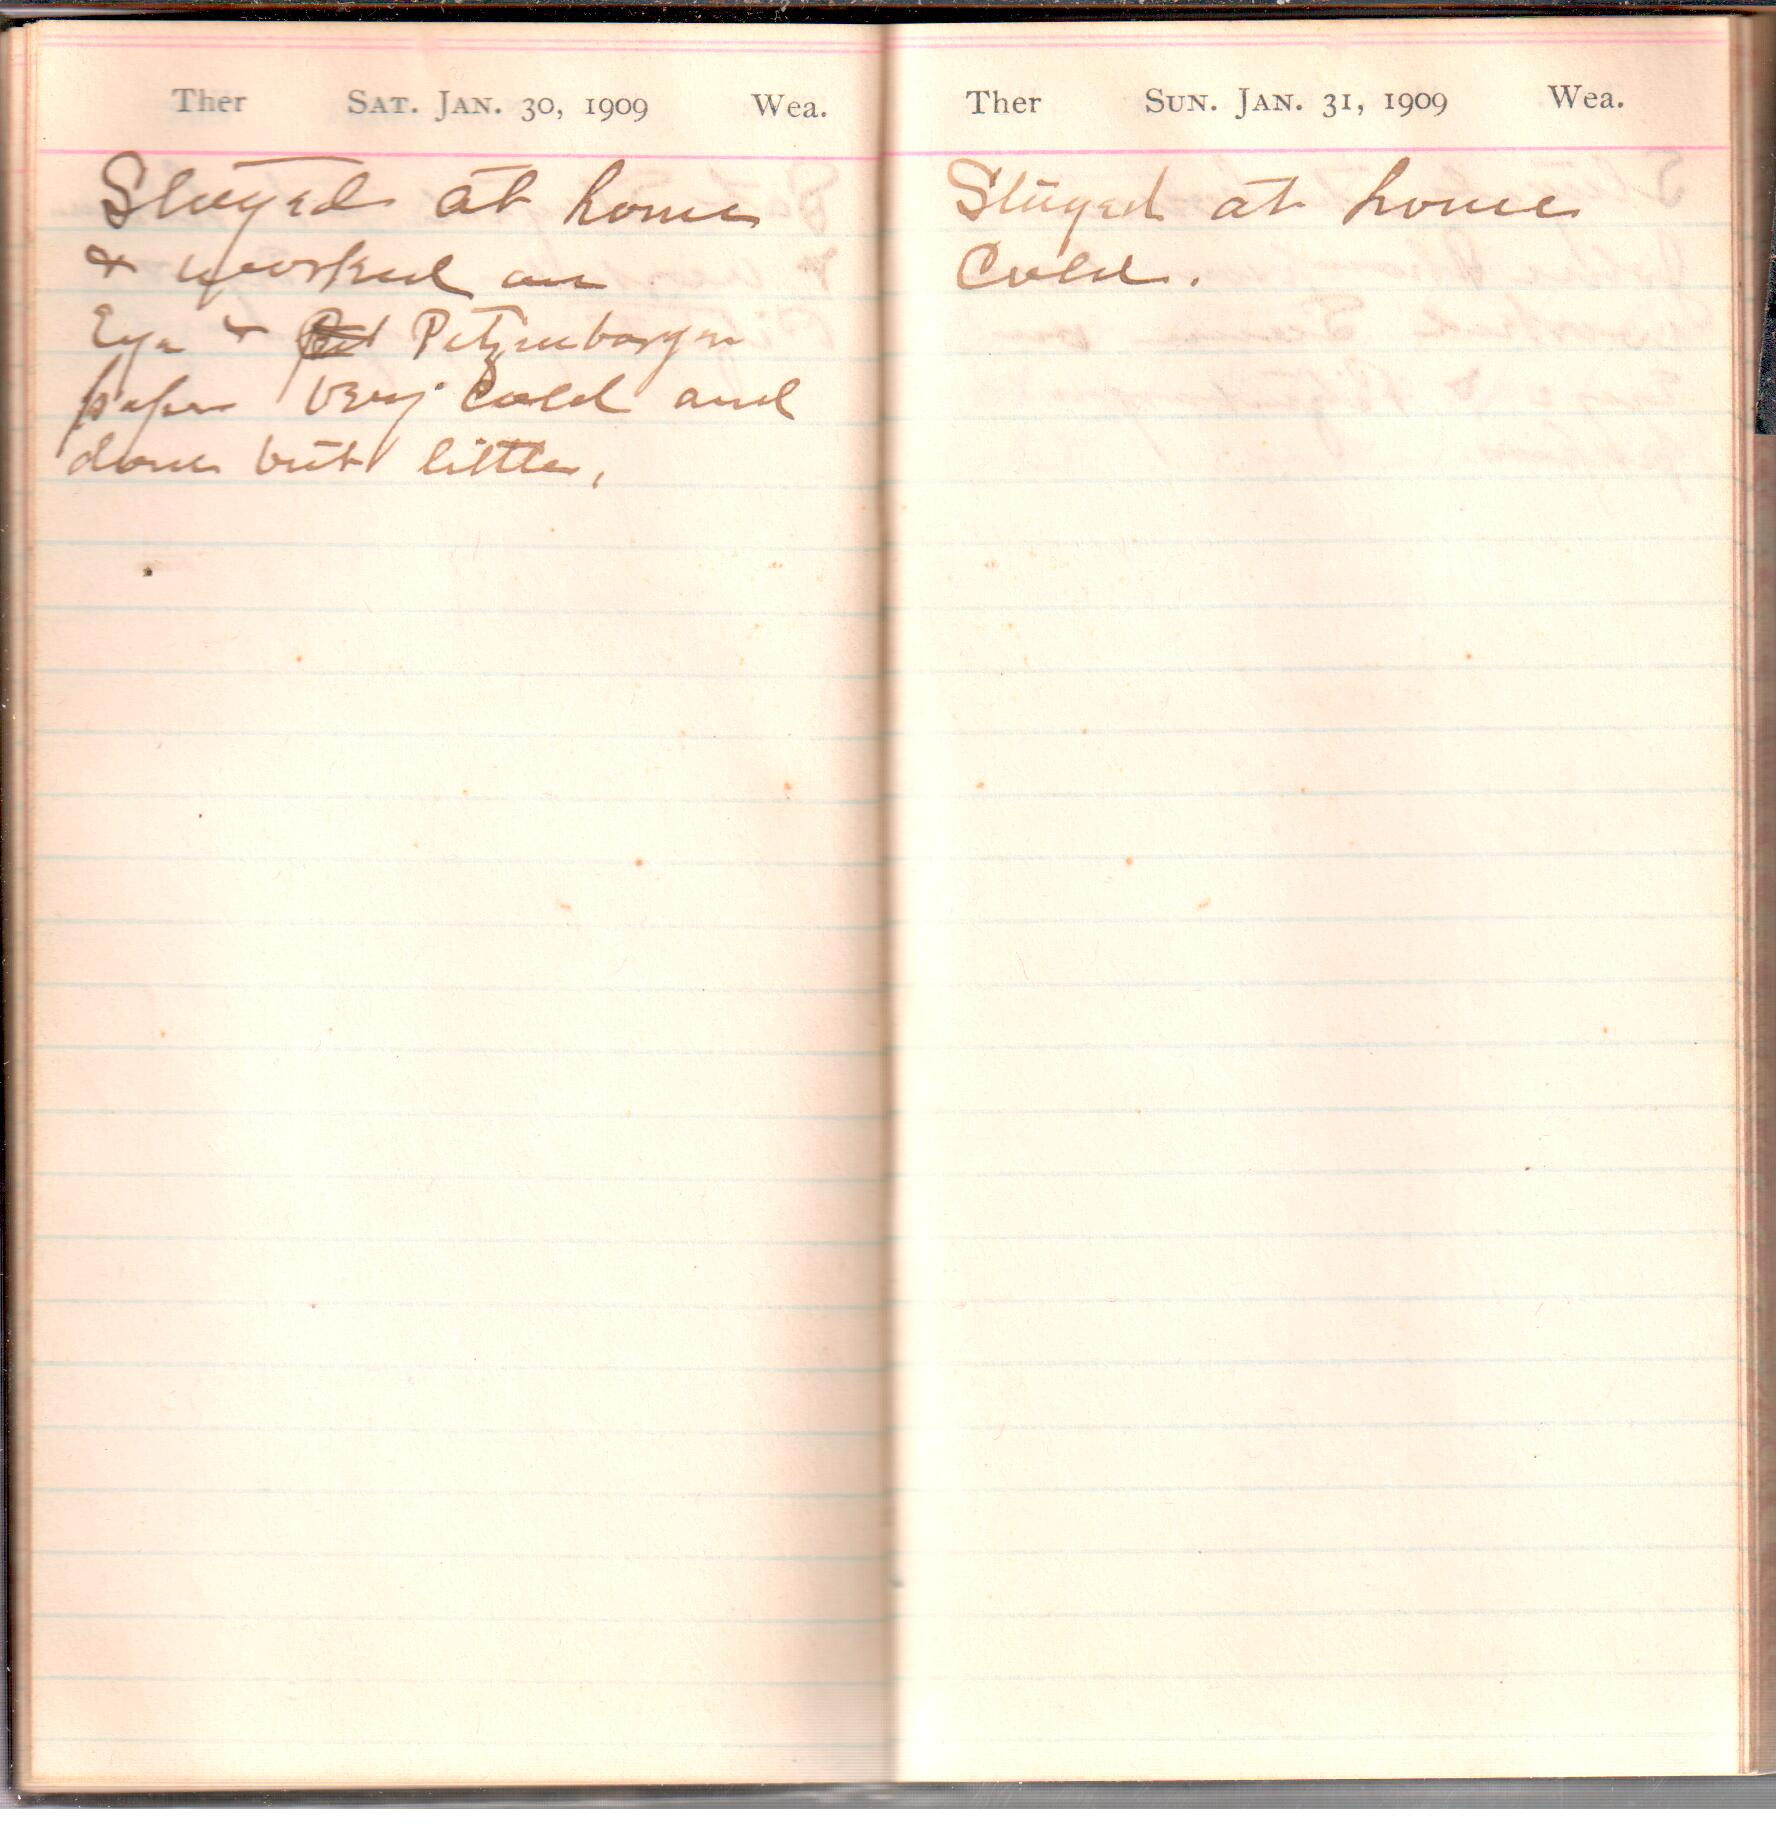 Ther Sat. Jan. 30, 1909 Wea.
Stayed at home
& worked on
Eye &
paper very cold and
done but little.
Ther Sun. Jan. 31, 1909 Wea.
Stayed at home
Cold.